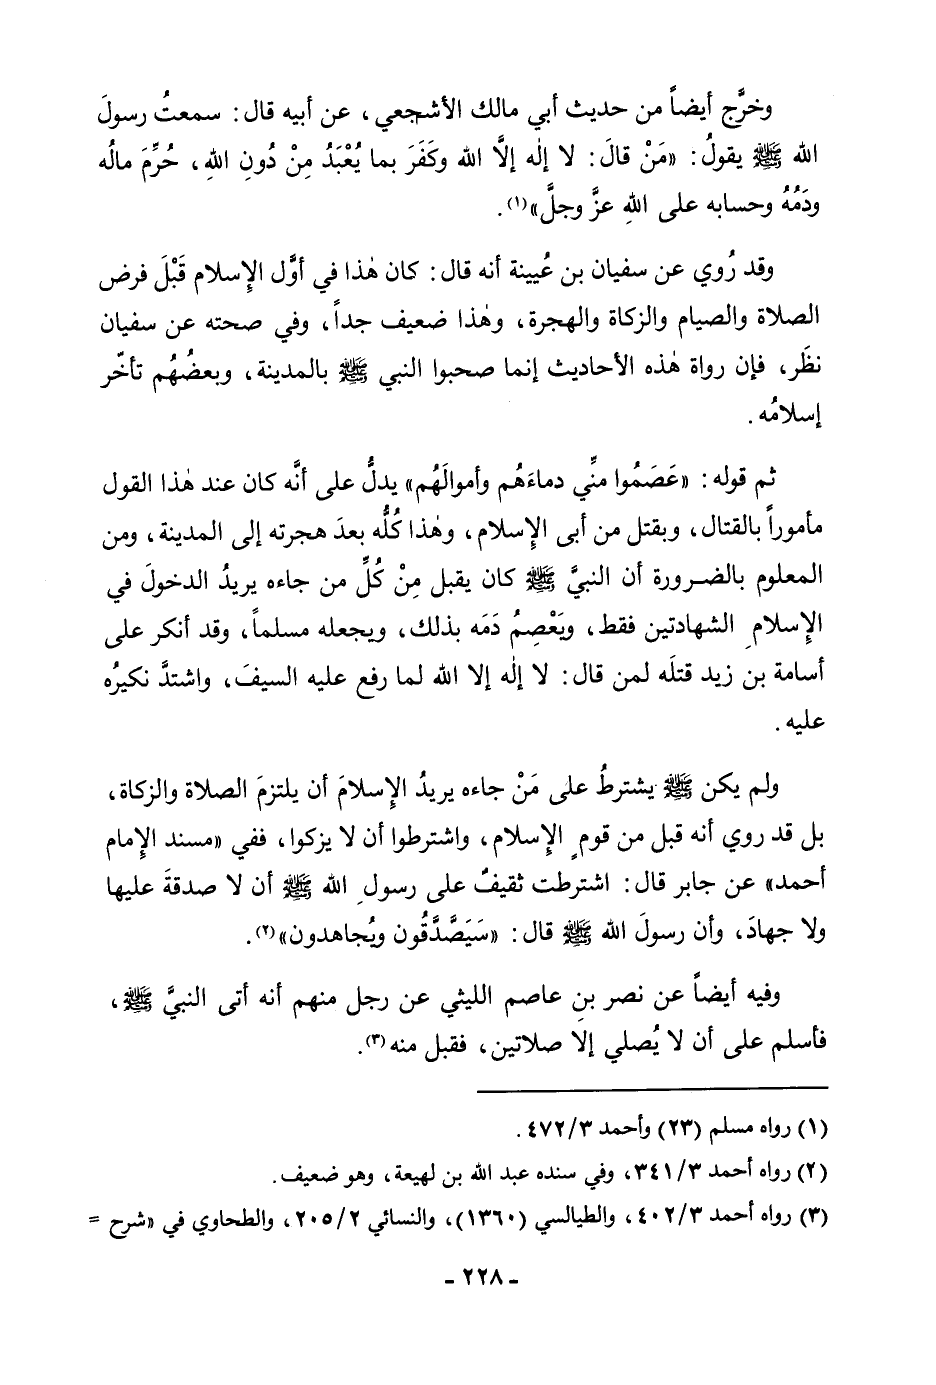 وخرَّج أيضاً من حديث أبي مالك الأشجعي، عن أبيه قال: سمعتُ رسولَ
الله ﷺ يقولُ: «مَنْ قالَ: لا إلٰه إلَّا الله وكَفَرَ بما يُعْبَدُ مِنْ دُونِ اللهِ، حُرِّمَ مالُه
ودَمُهُ وحسابه على اللهِ عزَّ وجلَّ»(١).
وقد رُوي عن سفيان بن عُيينة أنه قال: كان هٰذا في أوَّل الإِسلام قَبْلَ فرض
الصلاة والصيام والزكاة والهجرة، وهٰذا ضعيف جداً، وفي صحته عن سفيان
نظَر، فإن رواة هٰذه الأحاديث إنما صحبوا النبي ﷺ بالمدينة، وبعضُهُم تأخّر
إسلامُه.
ثم قوله: «عَصَمُوا منِّي دماءَهُم وأموالَهُم» يدلُّ على أنَّه كان عند هٰذا القول
مأموراً بالقتال، وبقتل من أبى الإِسلام، وهٰذا كُلُّه بعدَ هجرته إلى المدينة، ومن
المعلوم بالضرورة أن النبيَّ ﷺ كان يقبل مِنْ كُلِّ من جاءه يريدُ الدخولَ في
الإِسلامِ الشهادتين فقط، ويَعْصِمُ دَمَه بذلك، ويجعله مسلماً، وقد أنكر على
أسامة بن زيد قتلَه لمن قال: لا إلٰه إلا الله لما رفع عليه السيفَ، واشتدَّ نكيرُه
عليه.
ولم يكن ﷺ يشترطُ على مَنْ جاءه يريدُ الإِسلامَ أن يلتزمَ الصلاة والزكاة،
بل قد روي أنه قبل من قومٍ الإِسلام، واشترطوا أن لا يزكوا، ففي «مسند الإِمام
أحمد» عن جابر قال: اشترطت ثقيفٌ على رسولِ الله ﷺ أن لا صدقةَ عليها
ولا جهادَ، وأن رسولَ الله ﷺ قال: «سَيَصَّدَّقُون ويُجاهدون»(٢).
وفيه أيضاً عن نصر بنِ عاصم الليثي عن رجل منهم أنه أتى النبيَّ ﷺ،
فأسلم على أن لا يُصلي إلا صلاتين، فقبل منه(٣).
(١) رواه مسلم (٢٣) وأحمد ٤٧٢/٣.
(٢) رواه أحمد ٣٤١/٣، وفي سنده عبد الله بن لهيعة، وهو ضعيف.
(٣) رواه أحمد ٤٠٢/٣، والطيالسي (١٣٦٠)، والنسائي ٢٠٥/٢، والطحاوي في «شرح =
- ٢٢٨ -